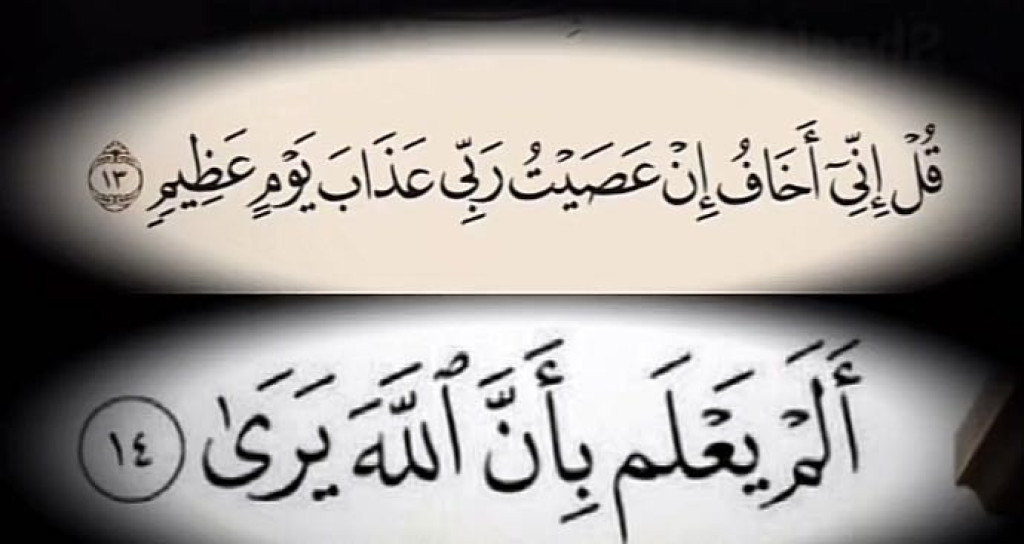 قُلۡ إِنِّيٓ أَخَافُ إِنۡ عَصَيۡتُ رَبِّي عَذَابَ يَوۡمٍ عَظِيمٖ ١٣
أَلَمۡ يَعۡلَم بِأَنَّ ٱللَّهَ يَرَىٰ ١٤